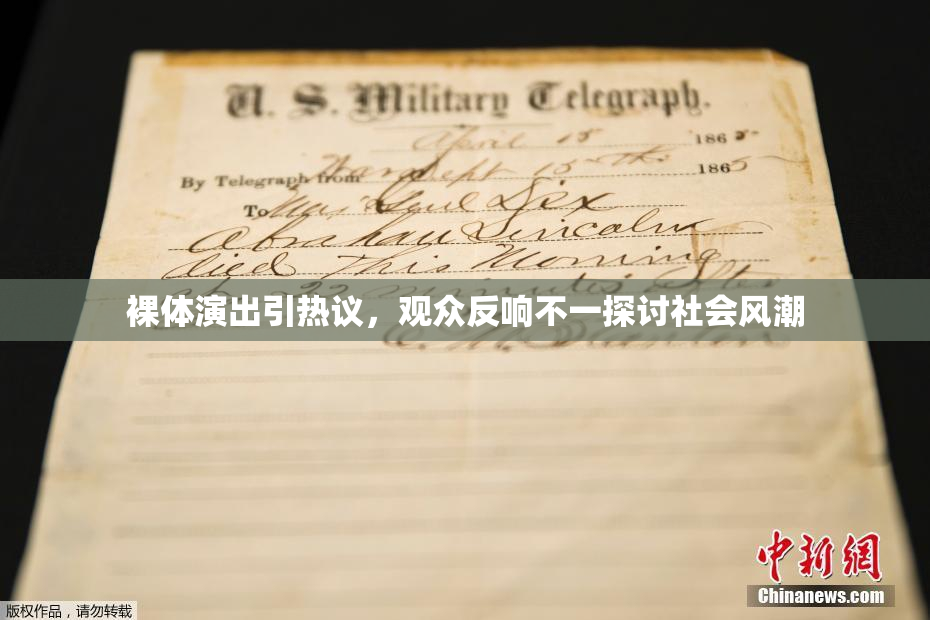 U. S. Military Telegraph.
April 15 1865
By Telegraph from War Dept 15th 1865
To Maj Genl Dix
Abraham Lincoln
died This Morning
at 22 minutes after
裸体演出引热议，观众反响不一探讨社会风潮
E. M. Stanton
中新网
Chinanews.com
版权作品，请勿转载